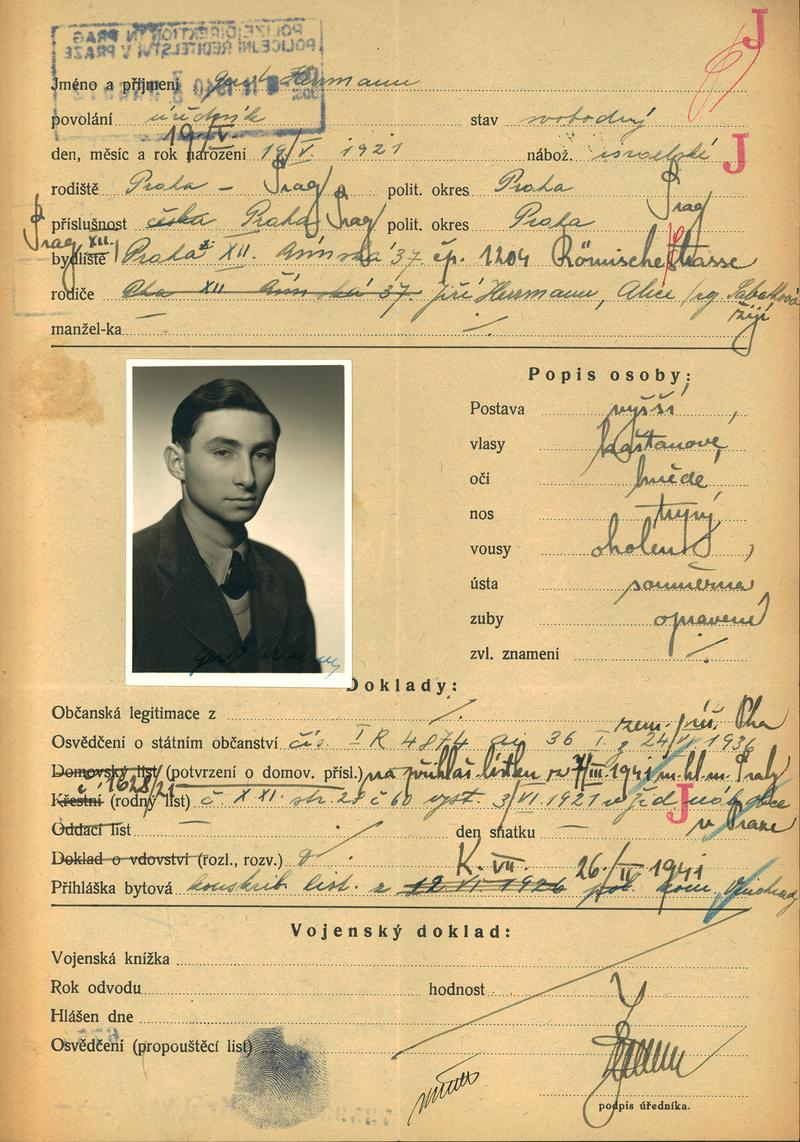 POLIZEIDIREKTION IN PRAG
POLICEJNÍ ŘEDITELSTVÍ V PRAZE
J
Jméno a příjmení Herrmann
povolání úředník stav svobodný
19/V.
den, měsíc a rok narození 19/V. 1921 nábož. israelské J
rodiště Praha – Prag polit. okres Praha Prag
příslušnost česká Praha Prag polit. okres Praha
Prag XII.
bydliště Praha XII. Římská 37. čp. 1204 Römischestrasse
rodiče Pha XII Římská 37. Jiří Herrmann, Alice
žijí
manžel-ka
Popis osoby:
Postava vyšší,
vlasy kaštanové,
oči hnědé,
nos
vousy oholen,
ústa souměrná
zuby opravené
zvl. znamení
Doklady:
Občanská legitimace z
zem. Pha
Osvědčení o státním občanství čís. I R 4874 36 I. z 24/ 1936
Domovský list (potvrzení o domov. přísl.) na přihláš. lístku 1941 m. hl. m. Prahy
č. 1628/21
Křestní (rodný list) č. XXI. str. 28 č 60 vyst. 3/VI. 1921 žid. náb. obce
J v Praze
Oddací list den sňatku
Doklad o vdovství (rozl., rozv.)
K. VII. 26/II 1941
Přihláška bytová konskrib. list. z 12 XI 1926 pol. kom.
Vojenský doklad:
Vojenská knížka
Rok odvodu hodnost
Hlášen dne
Osvědčení (propouštěcí list)
podpis úředníka.